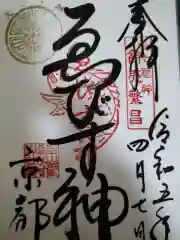 奉拝
令和五年
四月七日
商売繁昌
ゑびす神
京都